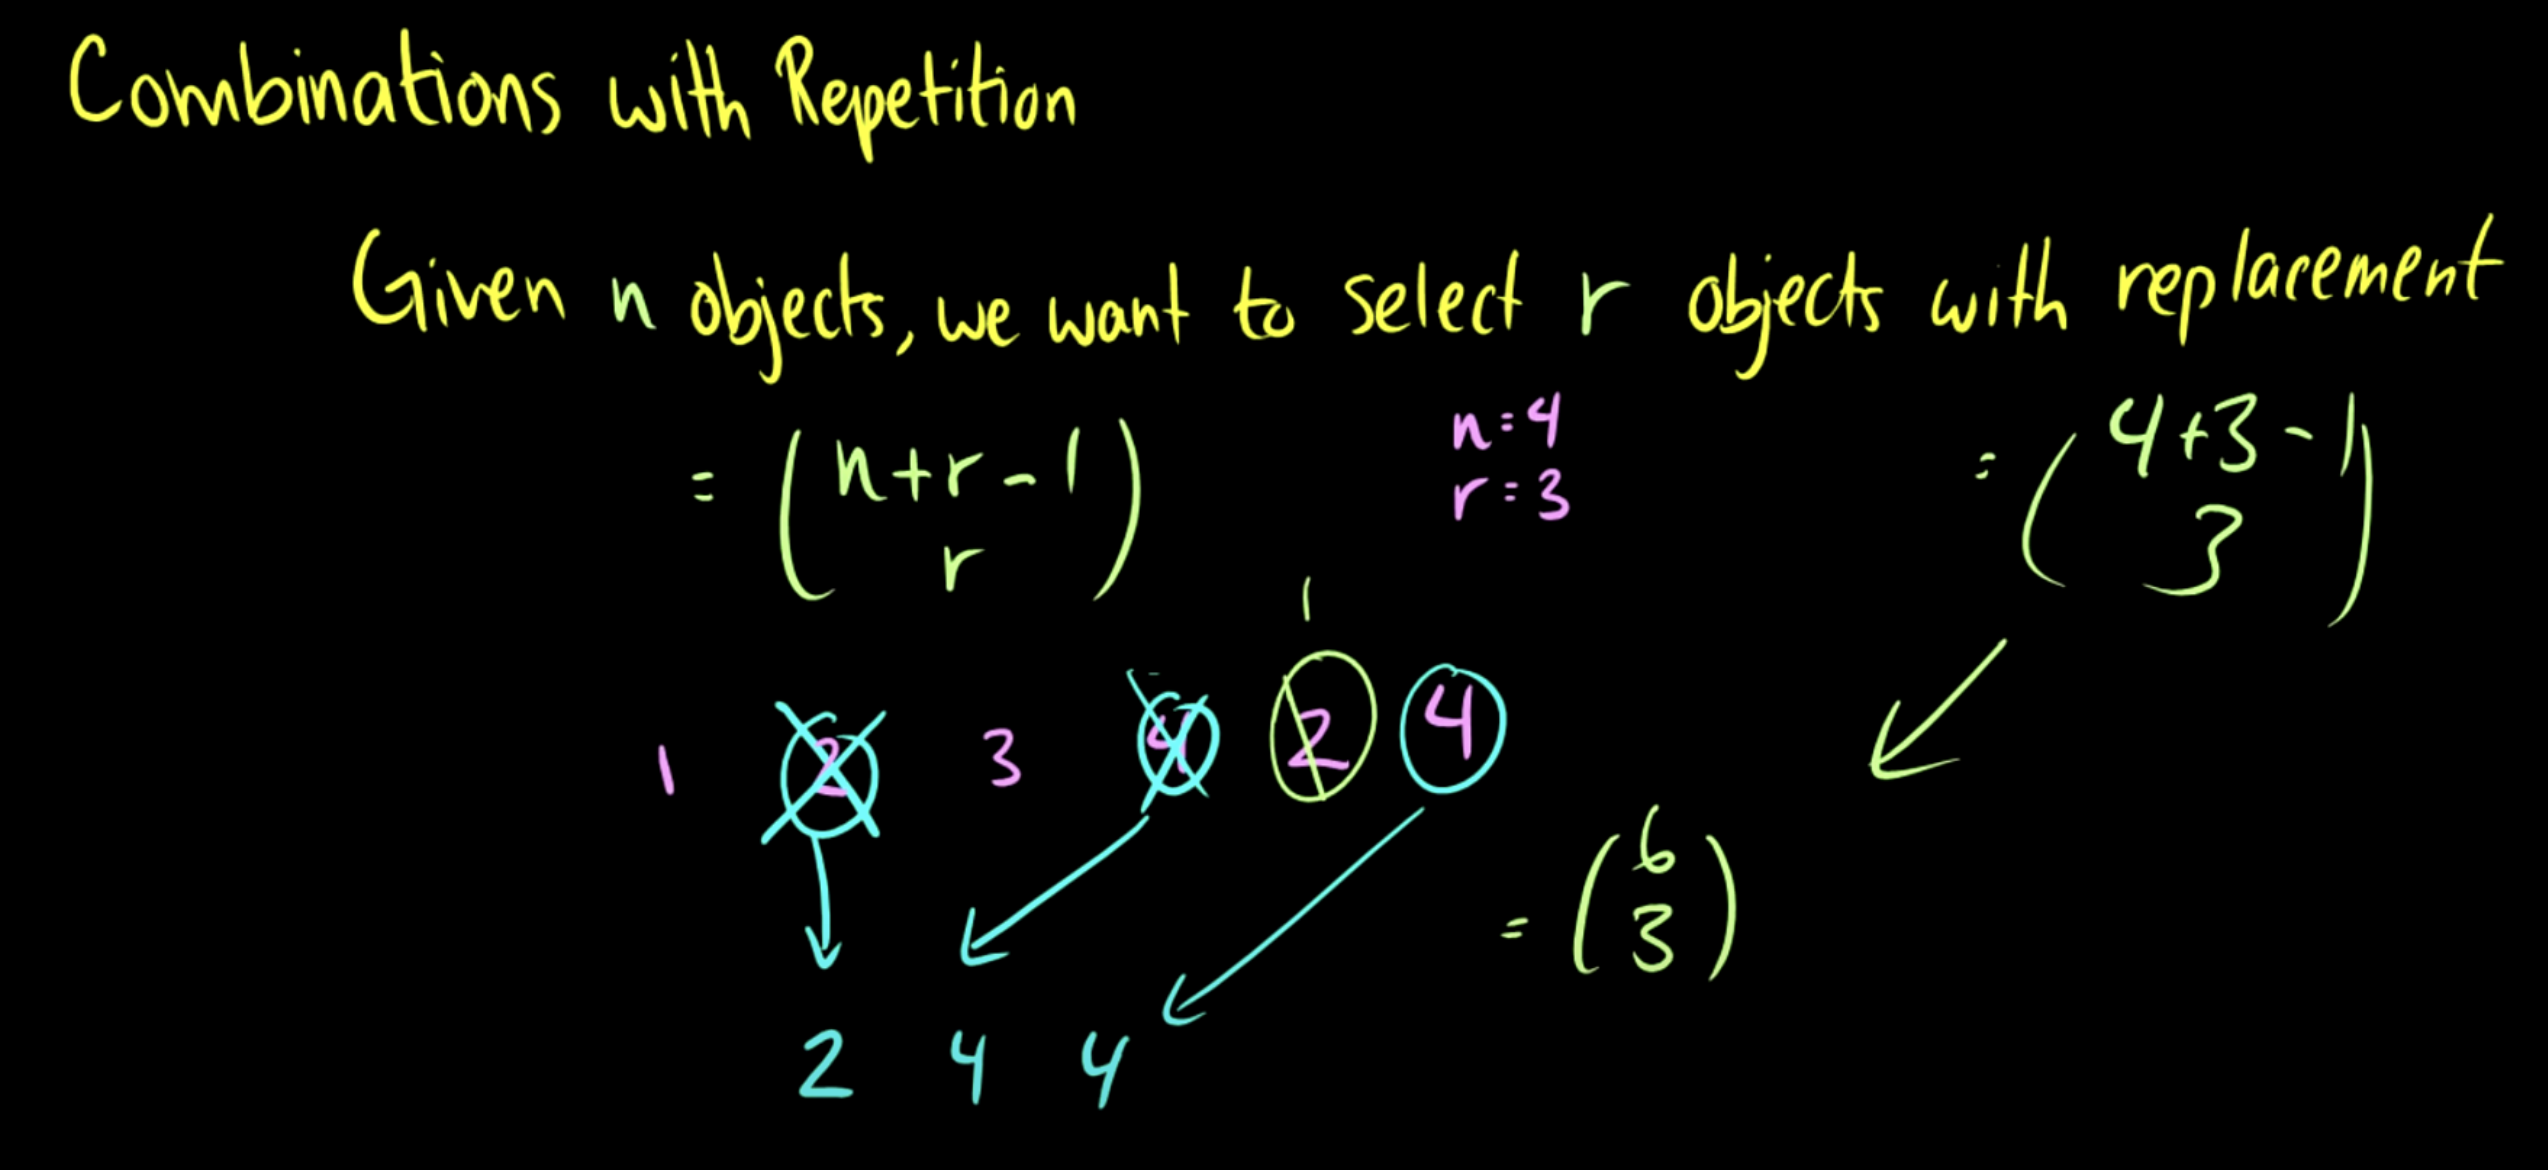 Combinations with Repetition
Given n objects, we want to select r objects with replacement
= (n+r-1
r)
n=4
r=3
= (4+3-1
3)
1
1 2 3 4 2 4
= (6
3)
2 4 4